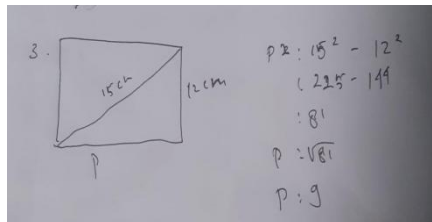 3.
15cm
12cm
P
P²: 15² - 12²
: 225 - 144
: 81
P : √81
P : 9